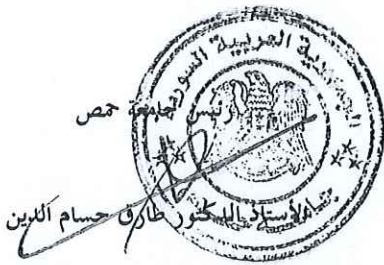 الجمهورية العربية السورية
رئيس جامعة حمص
الأستاذ الدكتور طارق حسام الدين